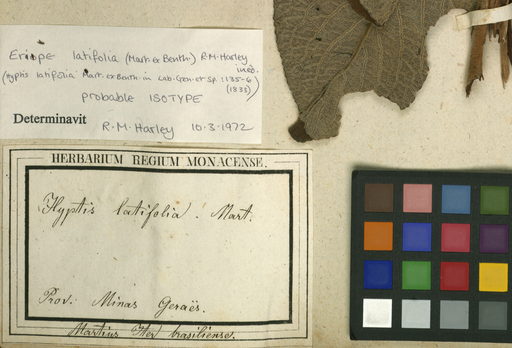 Eriope latifolia (Mart. ex Benth.) R.M. Harley
ined.
(Hyptis latifolia Mart. ex Benth. in Lab. Gen. et Sp.: 135-6
(1833)
probable ISOTYPE
Determinavit R.M. Harley 10.3.1972
HERBARIUM REGIUM MONACENSE.
Hyptis latifolia. Mart.
Prov: Minas Geraës.
Martius Iter brasiliense.